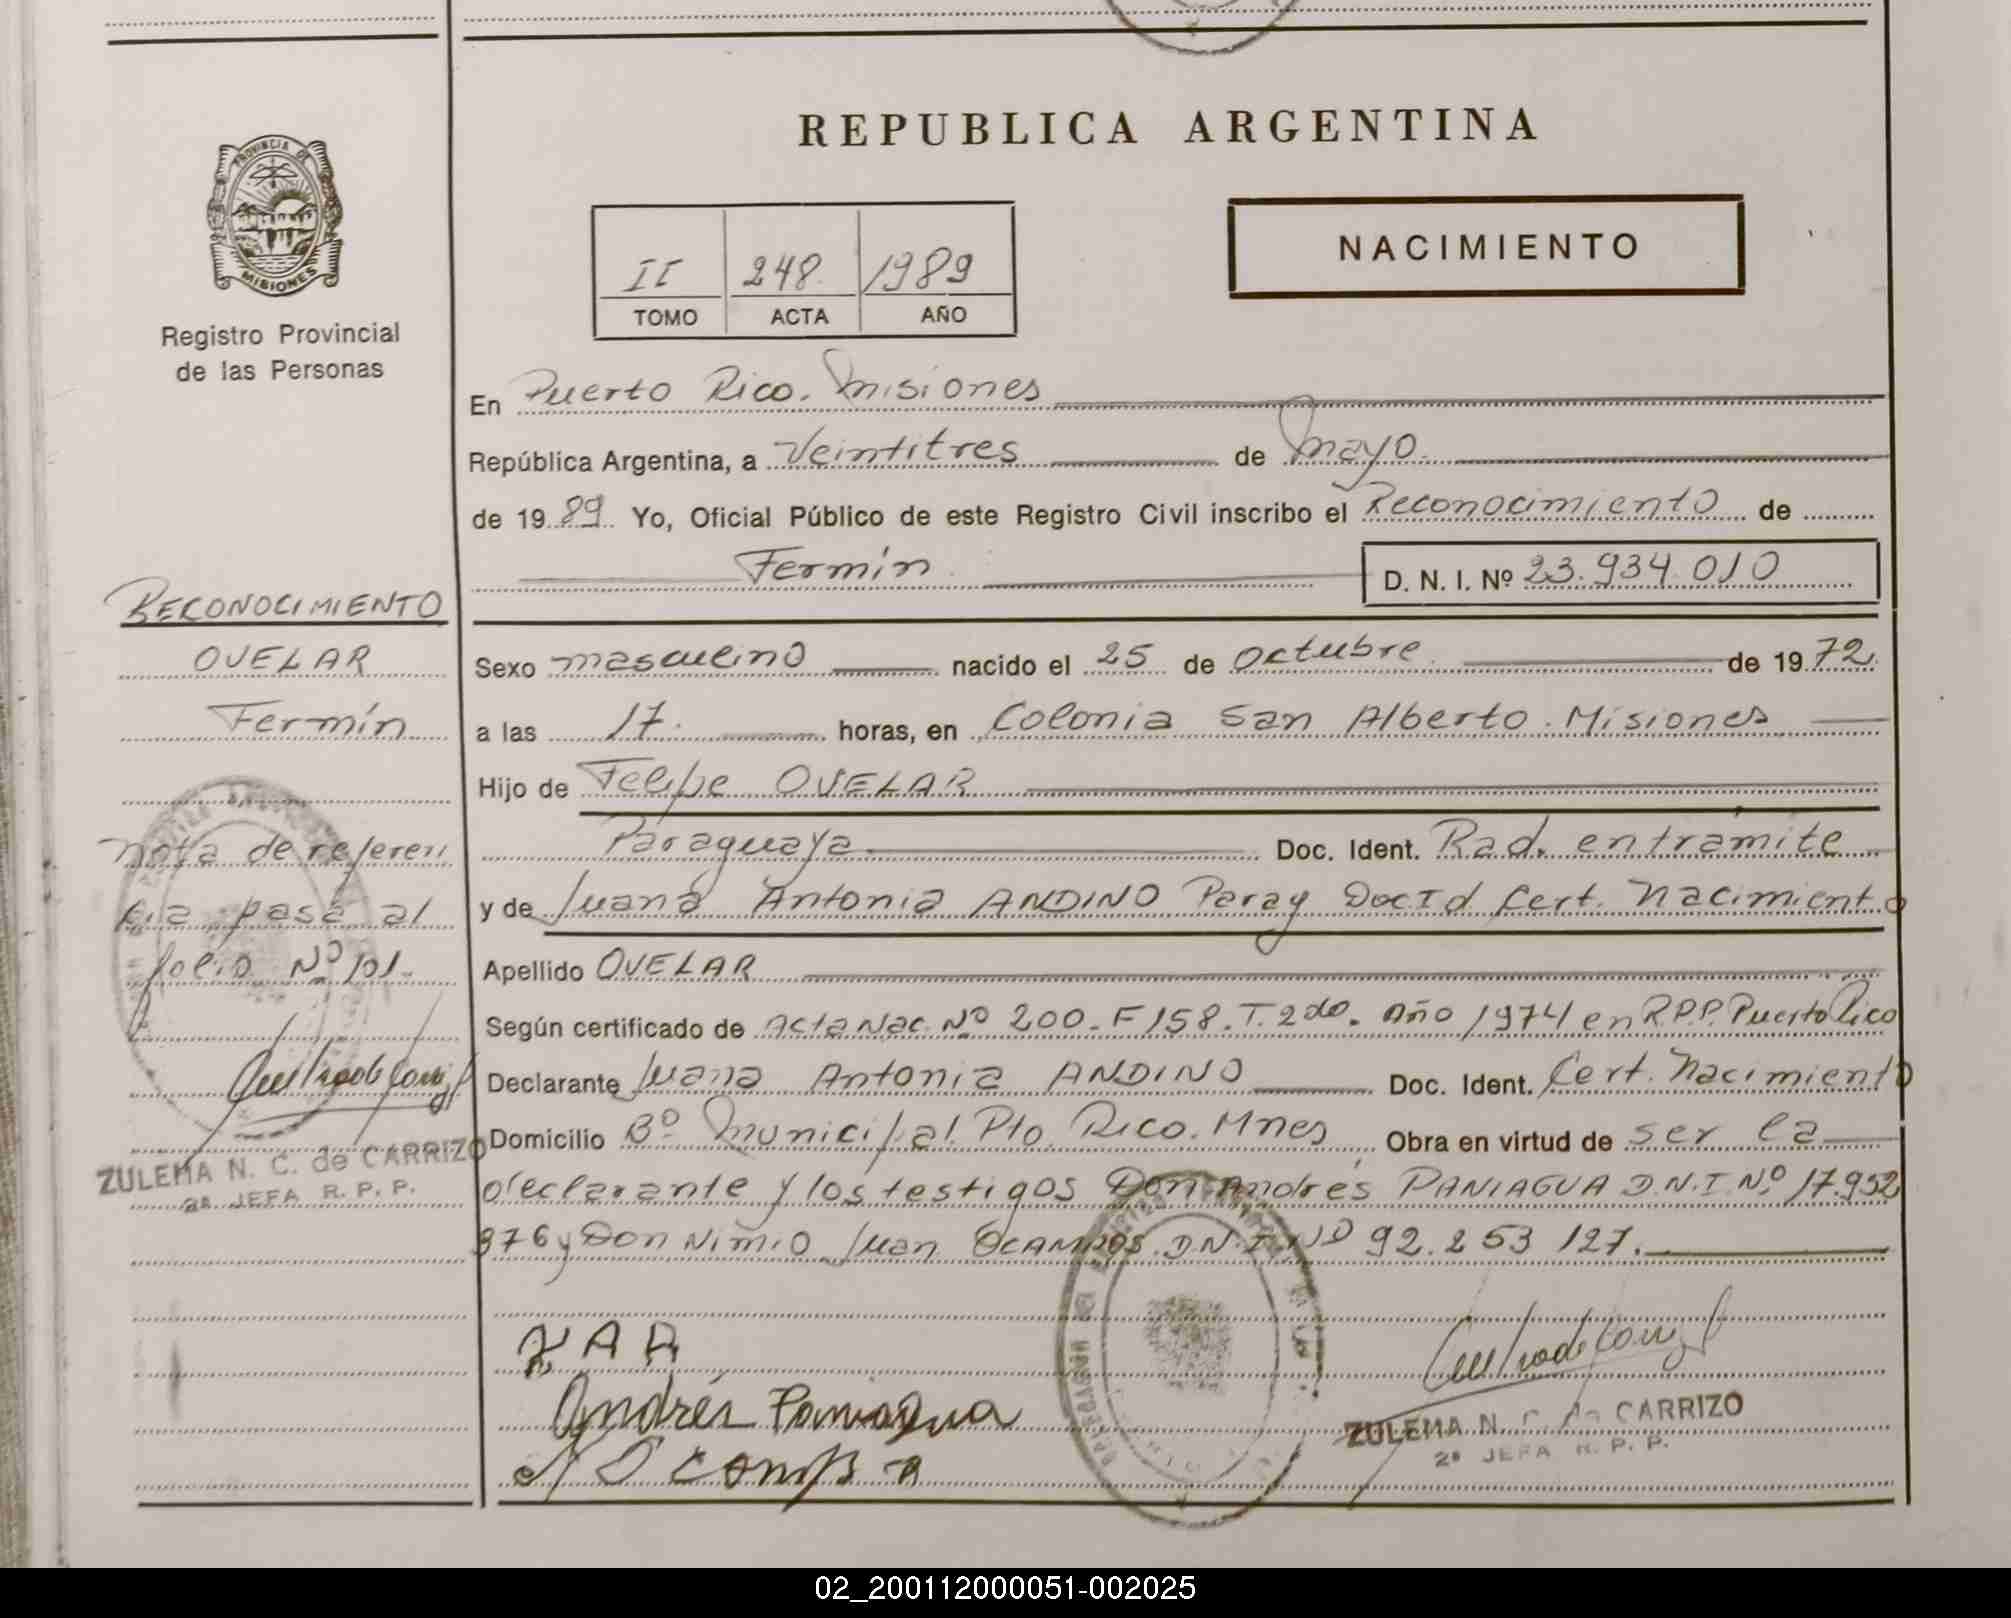 REPUBLICA ARGENTINA
PROVINCIA DE
MISIONES
Registro Provincial
de las Personas
II 248 1989
TOMO ACTA AÑO
NACIMIENTO
En Puerto Rico. Misiones
República Argentina, a Veintitres de Mayo
de 1989 Yo, Oficial Público de este Registro Civil inscribo el Reconocimiento de
Fermín D. N. I. Nº 23.934.010
Sexo masculino nacido el 25 de Octubre de 1972
a las 17. horas, en Colonia San Alberto. Misiones
Hijo de Felipe OVELAR
Paraguaya. Doc. Ident. Rad. entramite
y de Juana Antonia ANDINO Paray Doc Id Cert. Nacimiento
Apellido OVELAR
Según certificado de Acta Nac. Nº 200. F 158. T. 2do. Año 1974 en R.P.P. Puerto Rico
Declarante Juana Antonia ANDINO Doc. Ident. Cert. Nacimiento
Domicilio Bº Municipal Pto. Rico. Mnes Obra en virtud de ser la
declarante y los testigos Don Andrés PANIAGUA D.N.I. Nº 17.952
976 y Don Nimio Juan OCAMPOS D.N.I. Nº 92.253 127.
JAA
Andrés Paniagua
ZULEMA N. C. de CARRIZO
2ª JEFA R. P. P.
RECONOCIMIENTO
OVELAR
Fermín
Nota de referen
cia pasa al
folio Nº 101.
ZULEMA N. C. de CARRIZO
2ª JEFA R. P. P.
02_200112000051-002025